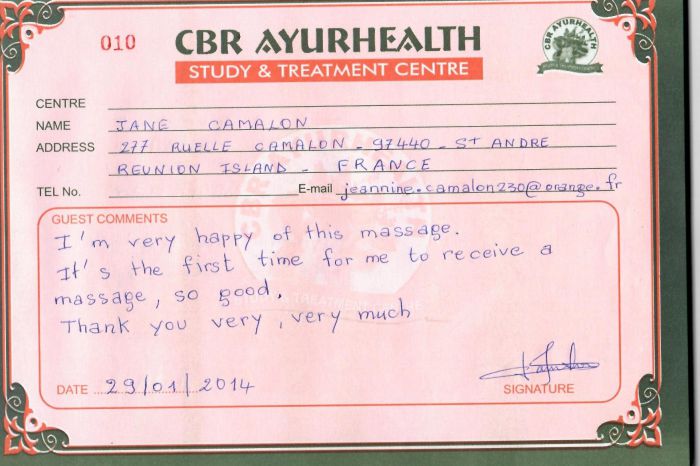 010
CBR AYURHEALTH
STUDY & TREATMENT CENTRE
CBR AYURHEALTH
CENTRE
NAME JANE CAMALON
ADDRESS 277 RUELLE CAMALON - 97440 - ST ANDRE
REUNION ISLAND - FRANCE
TEL No. E-mail jeannine.camalon230@orange.fr
GUEST COMMENTS
I'm very happy of this massage.
It's the first time for me to receive a
massage, so good.
Thank you very, very much
DATE 29/01/2014
SIGNATURE